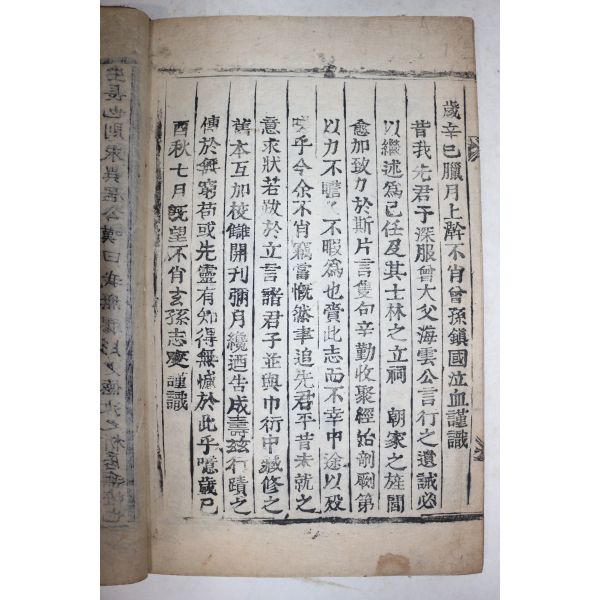 歲辛巳臘月上澣不肖曾孫鎭國泣血謹識
昔我先君子深服曾大父海雲公言行之遺誡必
以繼述爲己任及其士林之立祠 朝家之旌閭
愈加致力於斯片言隻句辛勤收聚經始剞劂第
以力不贍 不暇爲也賫此志而不幸中途以歿
嗟乎今余不肖竊嘗慨然聿追先君平昔未就之
意求狀若跋於立言諸君子並與巾衍中藏修之
舊本互加校讎開刊彌月纔迺告成壽玆行蹟之
傳於無窮苟或先靈有知得無憾於此乎噫歲己
酉秋七月旣望不肖玄孫志燮謹識
生長也則來異居公嘆曰我無